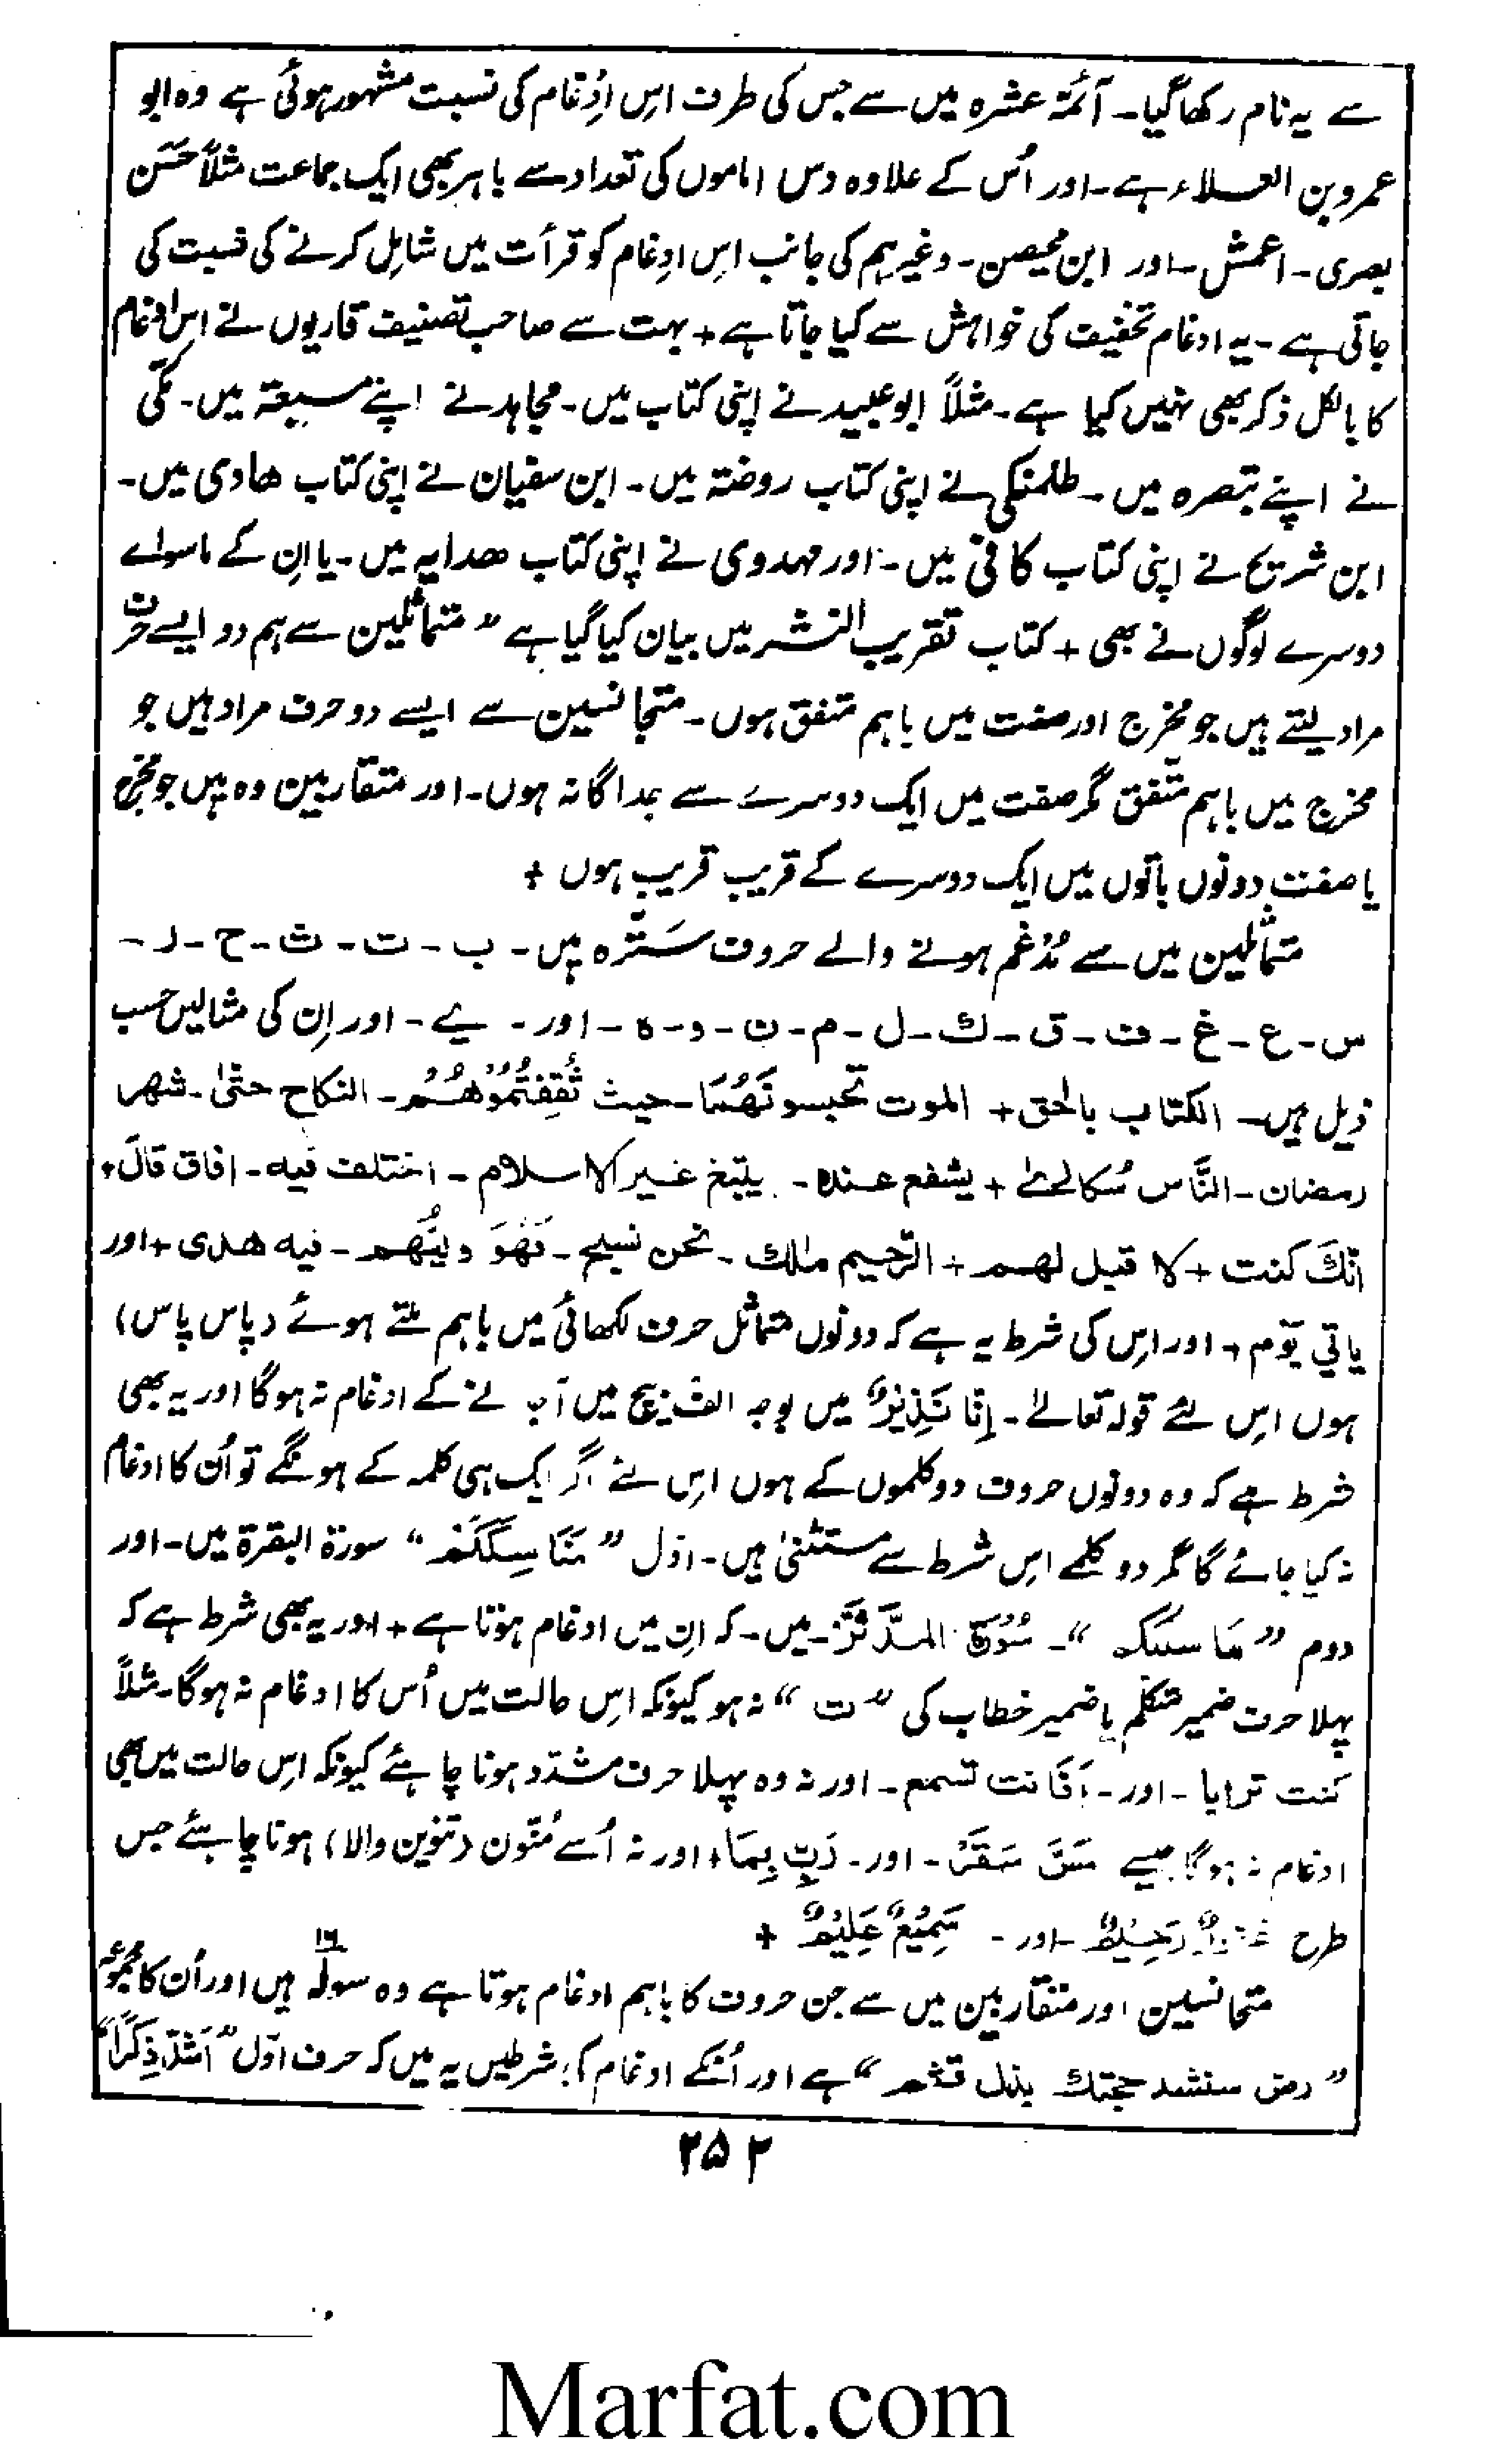 سے یہ نام رکھا گیا۔ آئمۂ عشرہ میں سے جس کی طرف اِس اِدْغام کی نسبت مشہور ہوئی ہے وہ ابو
عمرو بن العلاء ہے۔ اور اُس کے علاوہ دس اماموں کی تعداد سے باہر بھی ایک جماعت مثلاً حَسَن
بصری۔ اعمش۔ اور ابن محیصن۔ وغیرہم کی جانب اِس ادِغام کو قرأت میں شامِل کرنے کی نسبت کی
جاتی ہے۔ یہ ادغام تخفیف کی خواہش سے کیا جاتا ہے + بہت سے صاحب تصنیف قاریوں نے اِس ادغام
کا بالکل ذکر بھی نہیں کیا ہے۔ مثلاً ابو عبید نے اپنی کتاب میں۔ مجاہد نے اپنے مسبعۃ میں۔ مکّی
نے اپنے تبصرہ میں۔ طلمنکی نے اپنی کتاب روضتہ میں۔ ابن سفیان نے اپنی کتاب ھادی میں۔
ابن شریح نے اپنی کتاب کافی میں۔ اور مہدوی نے اپنی کتاب ھدایہ میں۔ یا اِن کے ماسواے
دوسرے لوگوں نے بھی + کتاب تقریب النشر میں بیان کیا گیا ہے ” متماثلین سے ہم دو ایسے حرف
مراد لیتے ہیں جو مخرج اور صفت میں باہم متفق ہوں۔ متجانسین سے ایسے دو حرف مراد ہیں جو
مخرج میں باہم متّفق مگر صفت میں ایک دوسرے سے جداگانہ ہوں۔ اور متقاربین وہ ہیں جو مخرج
یا صفت دونوں باتوں میں ایک دوسرے کے قریب قریب ہوں +
متماثلین میں سے مُدْغم ہونے والے حروف سَترّہ ہیں۔ ب۔ ت۔ ث۔ ح۔ ر۔
س۔ ع۔ غ۔ ف۔ ق۔ ك۔ ل۔ م۔ ن۔ و۔ ہ۔ اور۔ ے۔ اور اِن کی مثالیں حسب
ذیل ہیں۔ الکتاب بالحق + الموت تحبسونَہُمَا۔ حیث ثَقِفْتُمُوْھُمْ۔ النکاح حتّٰی۔ شھر
رمضان۔ النَّاس سُکالےٰ + یشفع عندہ۔ یبتغ غیر الاسلام۔ اختلف فیه۔ افاق قالَ +
اِنّکَ کنت + لا قبل لھم + الرّحیم ملك۔ نحن نسبح۔ فَھُوَ ولیُّھم۔ فیه ھدی + اور
یاتی یوْم + اور اِس کی شرط یہ ہے کہ دونوں متماثل حرف لکھائی میں باہم ملتے ہوئے (پاس پاس)
ہوں اِس لئے قولہ تعالےٰ۔ اِنَّا نَذِیْرٌ میں بوجہ الف بیچ میں آ جانے کے ادغام نہ ہوگا اور یہ بھی
شرط ہے کہ وہ دونوں حروف دو کلموں کے ہوں اِس لئے اگر ایک ہی کلمہ کے ہونگے تو اُن کا ادغام
نہ کیا جائے گا مگر دو کلمے اِس شرط سے مستثنیٰ ہیں۔ اوّل ” مَنَاسِکَکُمْ “ سورۃ البقرۃ میں۔ اور
دوم ” مَا سلککم “۔ سُوْرَۃ المدَّثّر۔ میں۔ کہ اِن میں ادغام ہوتا ہے + اور یہ بھی شرط ہے کہ
پہلا حرف ضمیر متکلم یا ضمیر خطاب کی ” ت “ نہ ہو کیونکہ اِس حالت میں اُس کا ادغام نہ ہوگا۔ مثلاً
کنت ترابا۔ اور۔ اَفَانت تسمع۔ اور نہ وہ پہلا حرف مشدّد ہونا چاہئے کیونکہ اِس حالت میں بھی
ادغام نہ ہوگا جیسے مَسَّ سَقَرَ۔ اور۔ رَبِّ بِمَا + اور نہ اُسے مُنّون (تنوین والا) ہونا چاہئے جس
طرح غفورٌ رَحِیْمٌ۔ اور۔ سَمِیْعٌ عَلِیْمٌ +
متجانسین اور متقاربین میں سے جن حروف کا باہم ادغام ہوتا ہے وہ سولہ ۱۶ ہیں اور اُن کا مجموعہ
” رض سنشد حجتك بذل قثم “ ہے اور اُنکے ادغام کی شرطیں یہ ہیں کہ حرف اوّل ” اَشَدَّ ذِکْرًا “
۲۵۲
Marfat.com